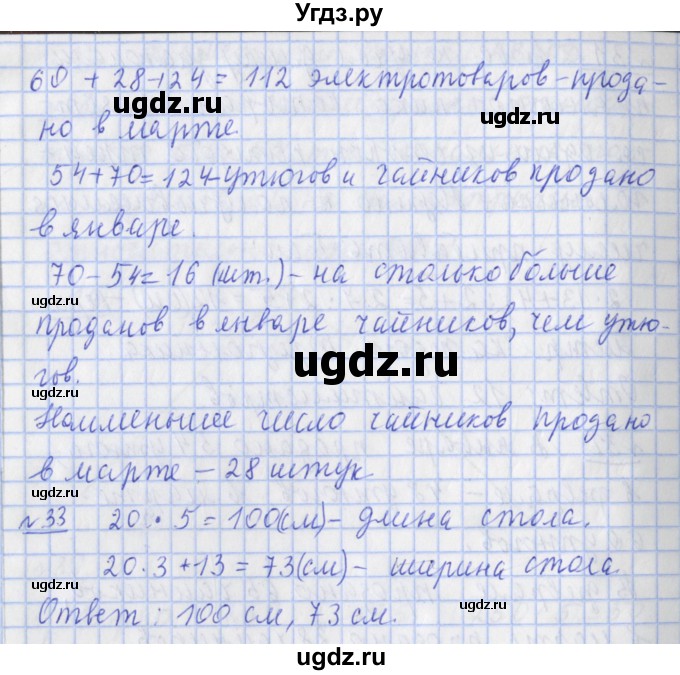 Угдз.ру
60 + 28 + 24 = 112 электротоваров - прода-
но в марте.
54 + 70 = 124 - утюгов и чайников продано
в январе.
70 - 54 = 16 (шт.) - на столько больше
проданов в январе чайников, чем утю-
гов.
Наименьшее число чайников продано
в марте - 28 штук.
№33 20 · 5 = 100(см) - длина стола.
20 · 3 + 13 = 73(см) - ширина стола.
Ответ: 100 см, 73 см.
ugdz.ru
ugdz.ru
ugdz.ru
ugdz.ru
ugdz.ru
ugdz.ru
ugdz.ru
ugdz.ru
ugdz.ru